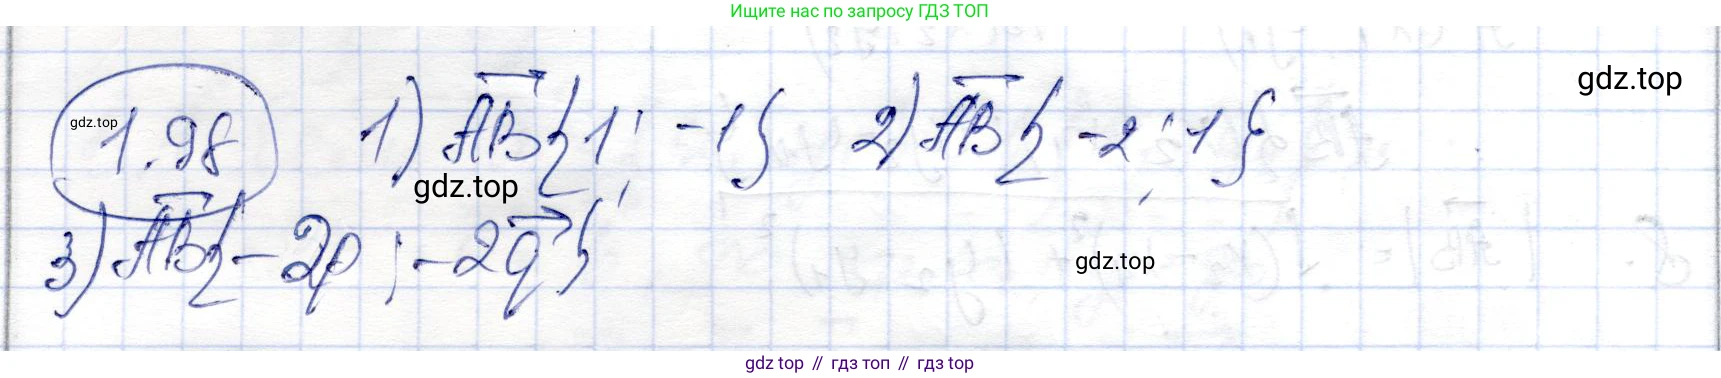 Ищите нас по запросу ГДЗ ТОП
gdz.top
gdz.top
1.98 1) AB{1; -1} 2) AB{-2; 1}
gdz.top
3) AB{-2p; -2q}
gdz.top
gdz top // гдз топ // гдз top